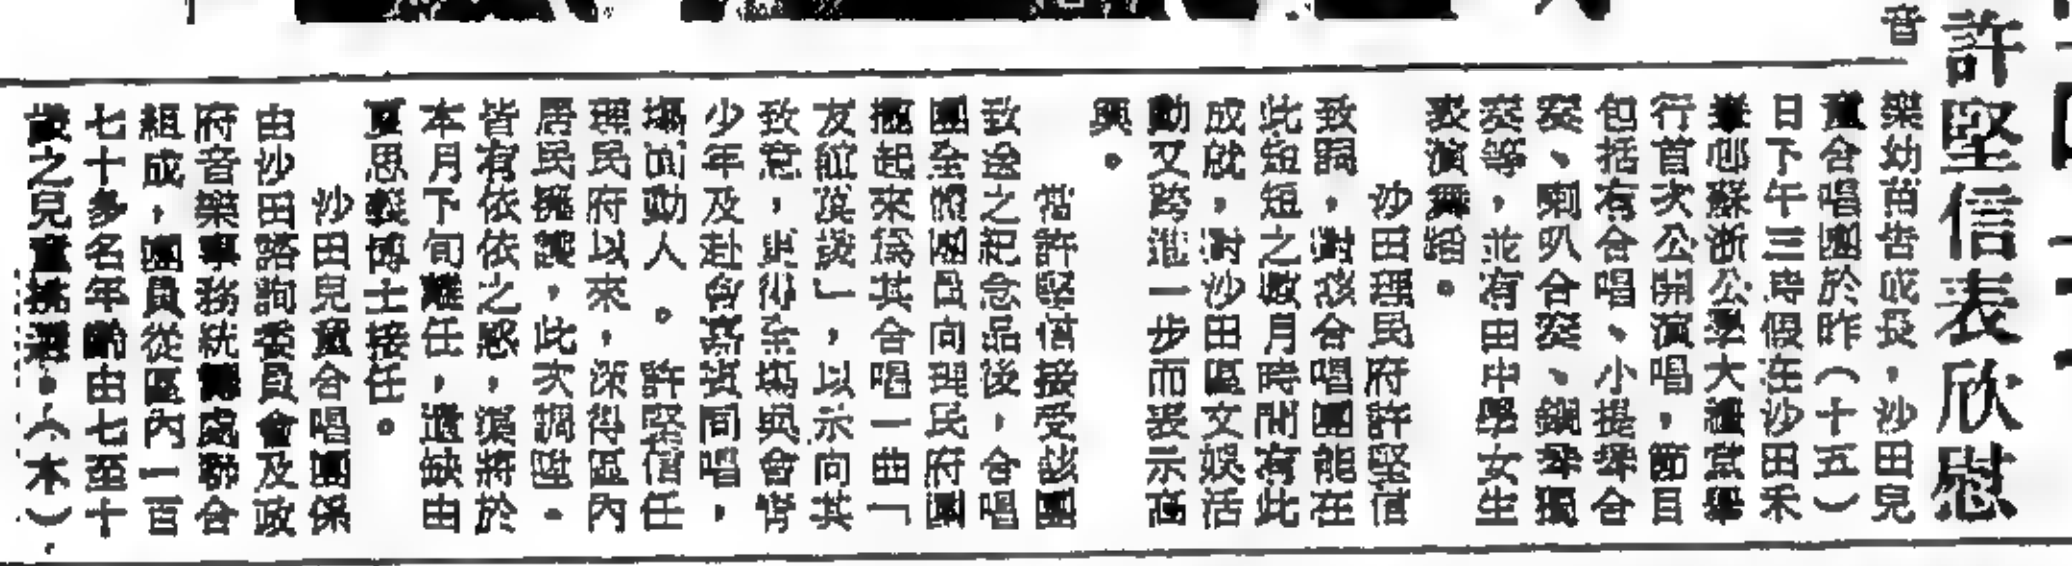 許堅信表欣慰
音
樂幼苗茁成長，沙田兒
童合唱團於昨（十五）
日下午三時假在沙田禾
輋鄧蘇浙公學大禮堂舉
行首次公開演唱，節目
包括有合唱、小提琴合
奏、喇叭合奏、鋼琴獨
奏等，並有由中學女生
表演舞蹈。
沙田理民府許堅信
致詞，對該合唱團能在
此短短之數月時間有此
成就，對沙田區文娛活
動又跨進一步而表示高
興。
當許堅信接受該團
致送之紀念品後，合唱
團全體團員向理民府團
起來為其合唱一曲「
友誼萬歲」，以示向其
致意，更得全場與會青
少年及赴會嘉賓同唱，
場面動人。許堅信任
理民府以來，深得區內
居民擁護，此次調陞，
皆有依依之感，渠將於
本月下旬離任，遺缺由
夏思義博士接任。
沙田兒童合唱團係
由沙田諮詢委員會及政
府音樂事務統籌處聯合
組成，團員從區內一百
七十多名年齡由七至十
歲之兒童挑選。（木）